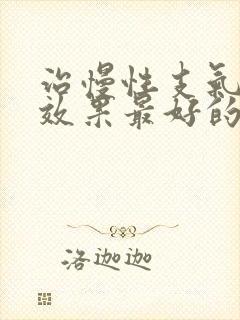 治慢性支氣
效果最好的
洛迦迦